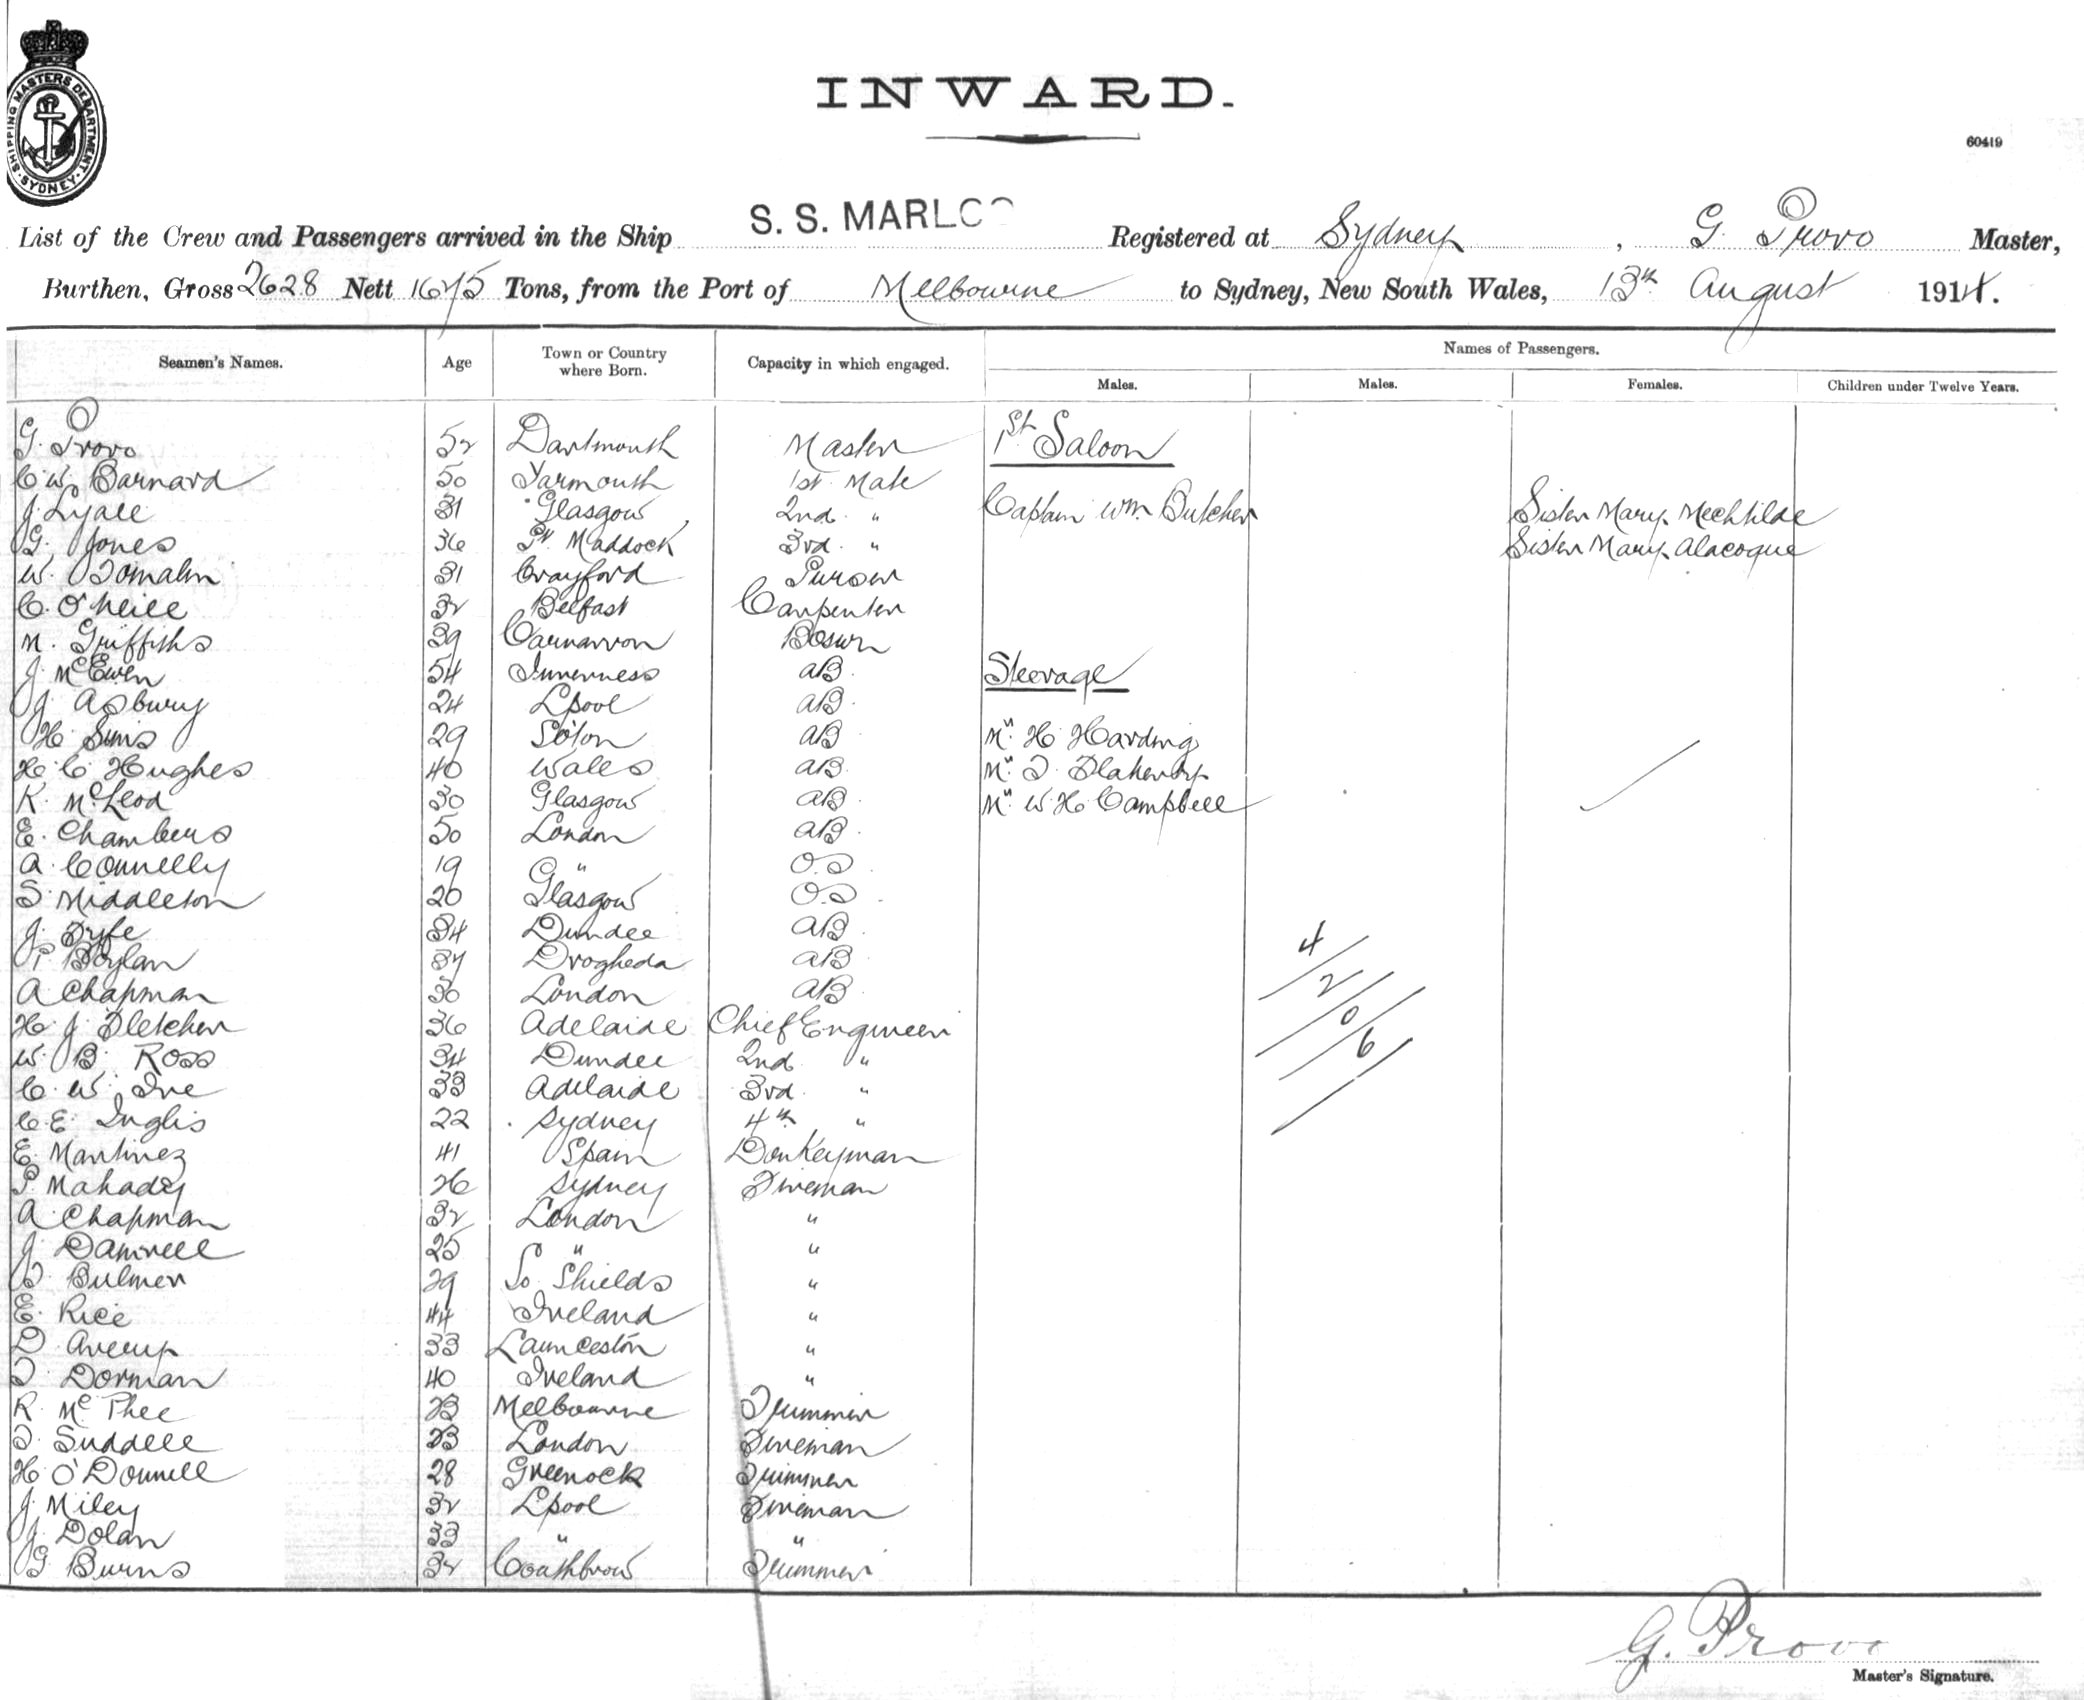 SHIPPING MASTERS DEPARTMENT. SYDNEY.
INWARD.
60419
List of the Crew and Passengers arrived in the Ship S. S. MARLCO Registered at Sydney, G. Provo Master,
Burthen, Gross 2628 Nett 1675 Tons, from the Port of Melbourne to Sydney, New South Wales, 13th August 1914.
Seamen's Names. Age Town or Country where Born. Capacity in which engaged. Names of Passengers.
Males. Males. Females. Children under Twelve Years.
G. Provo 52 Dartmouth Master 1st Saloon
C. W. Barnard 50 Yarmouth 1st Mate
J. Lyall 31 Glasgow 2nd " Captain Wm. Butcher Sister Mary Mechtilde
G. Jones 36 Pt Maddock 3rd " Sister Mary Alacoque
W. Tomalin 31 Crayford Purser
C. O'Neill 32 Belfast Carpenter
M. Griffiths 39 Carnarvon Bosun
J. McEwen 54 Inverness AB Steerage
J. Asbury 24 L'pool AB
H. Sims 29 So'ton AB Mr. H. Harding
H. C. Hughes 40 Wales AB Mr. T. Flaherty
K. McLeod 30 Glasgow AB Mr. W. H. Campbell
E. Chambers 50 London AB
A. Connelly 19 " O.S
S. Middleton 20 Glasgow O.S
J. Fyfe 34 Dundee AB 4
P. Boylan 37 Drogheda AB 2
A Chapman 30 London AB 0
H. J. Fletcher 36 Adelaide Chief Engineer 6
W. B. Ross 34 Dundee 2nd "
C. W. Ive 33 Adelaide 3rd "
C. E. Inglis 22 Sydney 4th "
E. Martinez 41 Spain Donkeyman
P. Mahady 26 Sydney Fireman
A. Chapman 32 London "
J. Damrell 25 " "
T. Bulmer 29 So. Shields "
E. Rice 44 Ireland "
D. Avery 33 Launceston "
T. Dorman 40 Ireland "
R. McPhee 23 Melbourne Trimmer
T. Suddell 23 London Fireman
H. O'Donnell 28 Greenock Trimmer
J. Miley 32 L'pool Fireman
J. Dolan 33 " "
G. Burns 32 Trimmer
G. Provo
Master's Signature.